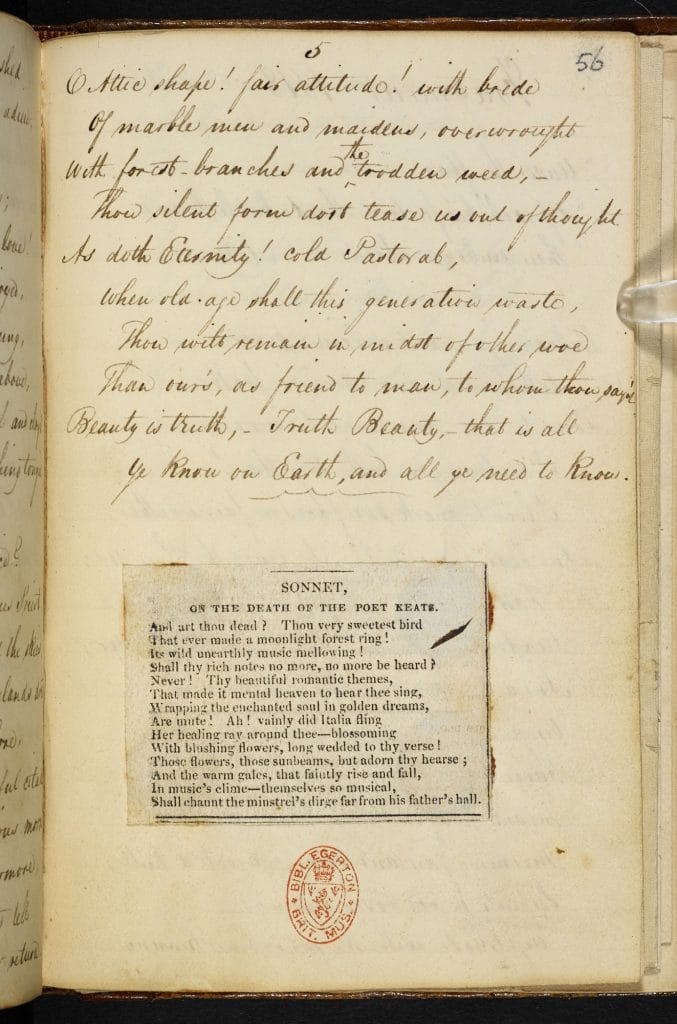 shed
adieu,
love!
oyed,
ung,
above,
5
56
O Attic shape! fair attitude! with brede
Of marble men and maidens, overwrought
With forest-branches and the trodden weed,–
Thou silent form dost tease us out of thought
As doth Eternity! cold Pastoral,
When old-age shall this generation waste,
Thou wilt remain in midst of other woe
Than our's, as friend to man, to whom thou say'st
Beauty is truth,– Truth Beauty,– that is all
Ye know on Earth, and all ye need to know.
SONNET,
ON THE DEATH OF THE POET KEATS.
And art thou dead? Thou very sweetest bird
That ever made a moonlight forest ring!
Its wild unearthly music mellowing!
Shall thy rich notes no more, no more be heard?
Never! Thy beautiful romantic themes,
That made it mental heaven to hear thee sing,
Wrapping the enchanted soul in golden dreams,
Are mute! Ah! vainly did Italia fling
Her healing ray around thee—blossoming
With blushing flowers, long wedded to thy verse!
Those flowers, those sunbeams, but adorn thy hearse;
And the warm gales, that faintly rise and fall,
In music's clime—themselves so musical,
Shall chaunt the minstrel's dirge far from his father's hall.
BIBL. EGERTON
BRIT. MUS.